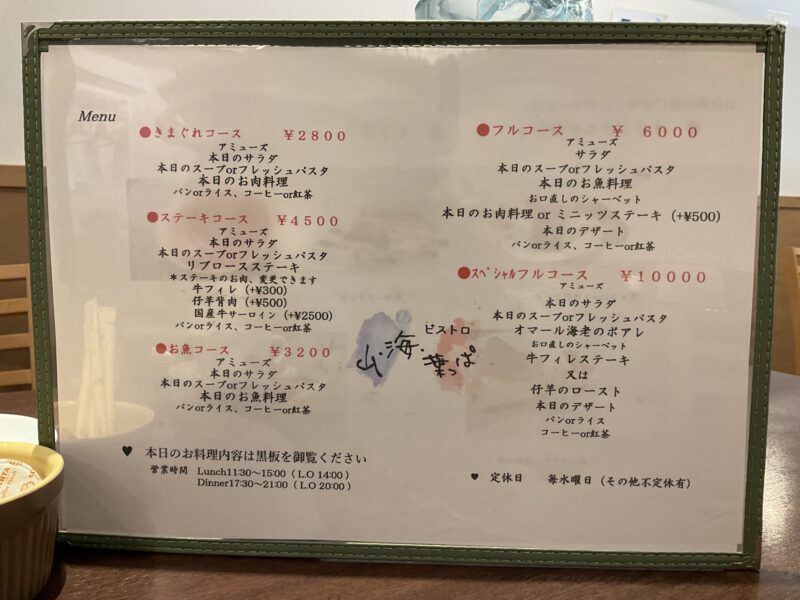 Menu
●きまぐれコース ￥2800
アミューズ
本日のサラダ
本日のスープorフレッシュパスタ
本日のお肉料理
パンorライス、コーヒーor紅茶
●ステーキコース ￥4500
アミューズ
本日のサラダ
本日のスープorフレッシュパスタ
リブロースステーキ
＊ステーキのお肉、変更できます
牛フィレ (+¥300)
仔羊背肉 (+¥500)
国産牛サーロイン (+¥2500)
パンorライス、コーヒーor紅茶
●お魚コース ￥3200
アミューズ
本日のサラダ
本日のスープorフレッシュパスタ
本日のお魚料理
パンorライス、コーヒーor紅茶
♥ 本日のお料理内容は黒板を御覧ください
営業時間 Lunch11:30～15:00（L.O 14:00）
Dinner17:30～21:00（L.O 20:00）
ビストロ
山・海・葉っぱ
●フルコース ￥ 6000
アミューズ
サラダ
本日のスープorフレッシュパスタ
本日のお魚料理
お口直しのシャーベット
本日のお肉料理 or ミニッツステーキ（+¥500）
本日のデザート
パンorライス、コーヒーor紅茶
●スペシャルフルコース ￥10000
アミューズ
本日のサラダ
本日のスープorフレッシュパスタ
オマール海老のポアレ
お口直しのシャーベット
牛フィレステーキ
又は
仔羊のロースト
本日のデザート
パンorライス
コーヒーor紅茶
♥ 定休日 毎水曜日（その他不定休有）